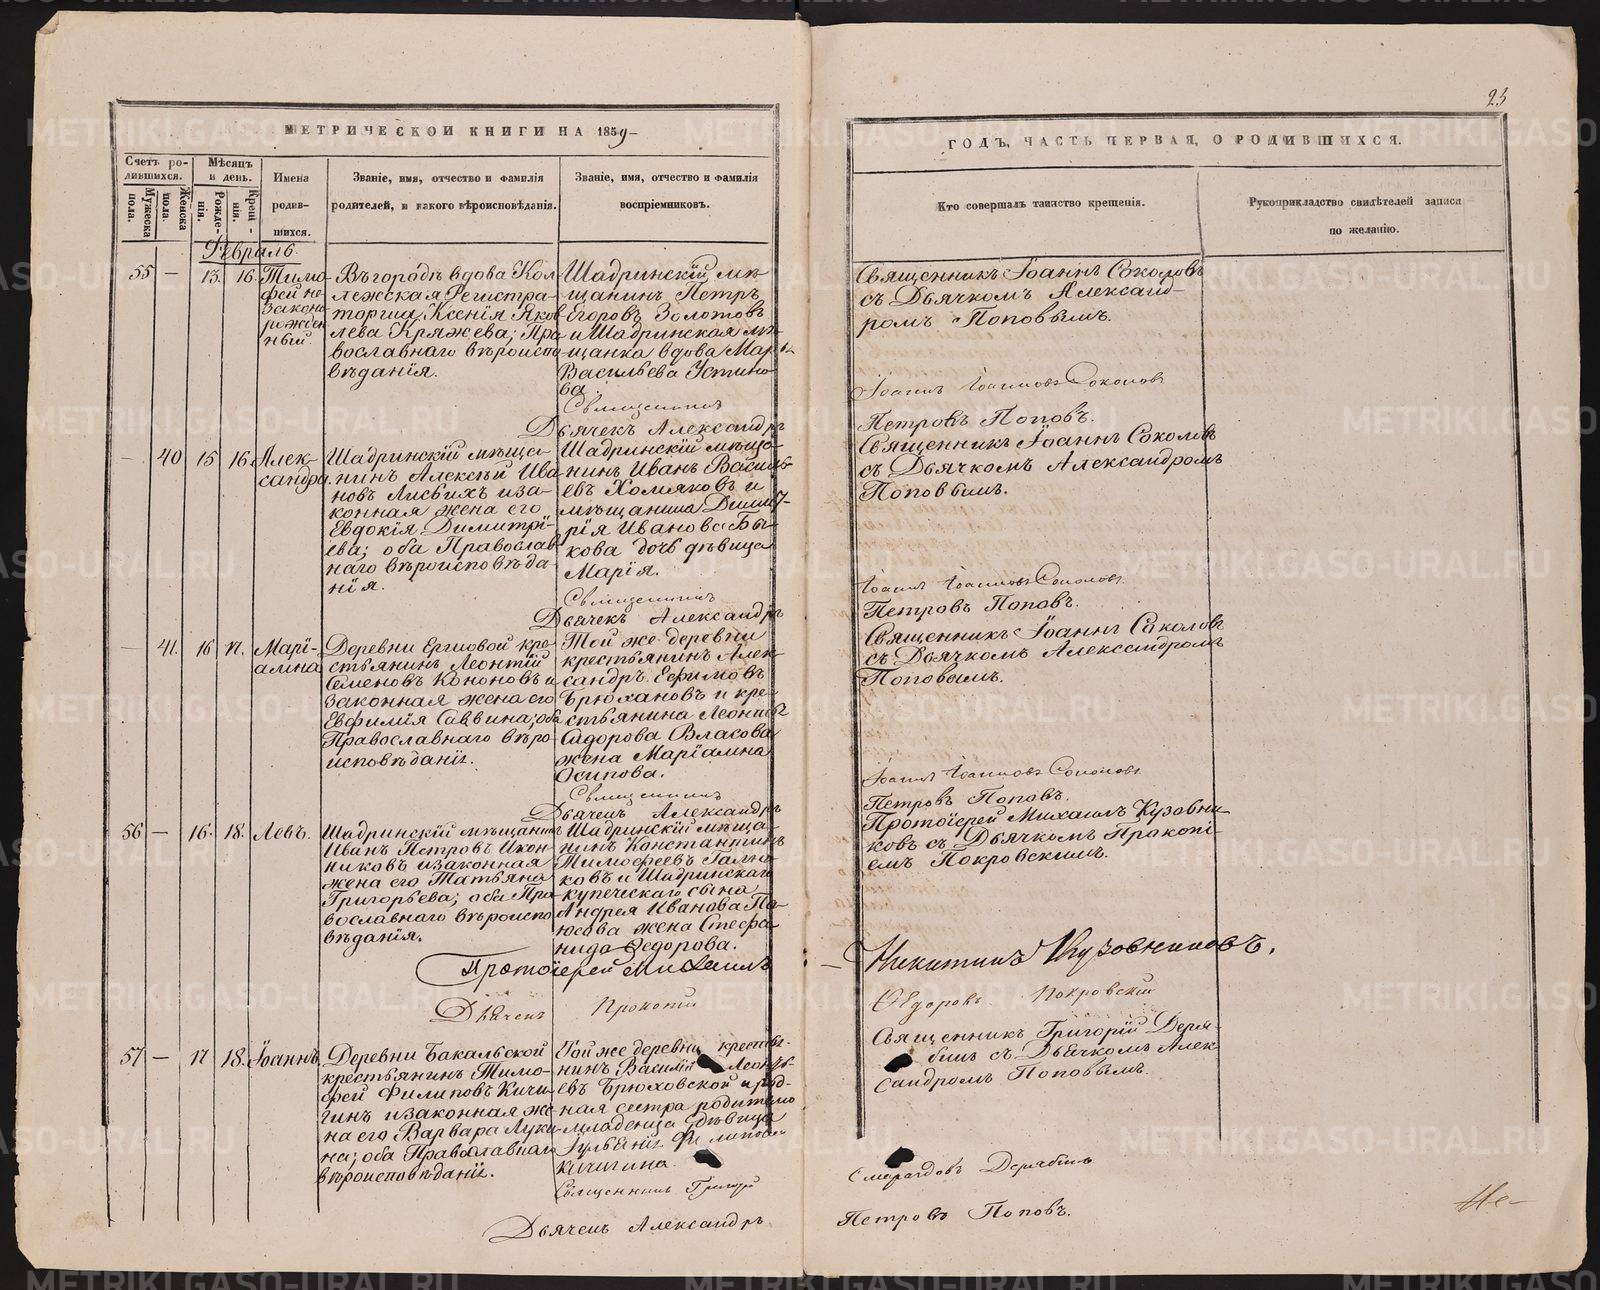 23
МЕТРИЧЕСКОЙ КНИГИ НА 1859
ГОДЪ, ЧАСТЬ ПЕРВАЯ, О РОДИВШИХСЯ.
Счетъ ро-
дившихся.
Мужеска
пола.
Женска
пола.
Мѣсяцъ
и день.
Рожде-
нія.
Креще-
нія.
Имена
родив-
шихся.
Званіе, имя, отчество и фамилія
родителей, и какого вѣроисповѣданія.
Званіе, имя, отчество и фамилія
воспріемниковъ.
Кто совершалъ таинство крещенія.
Рукоприкладство свидѣтелей записи
по желанію.
Февраль.
55 — 13. 16.
Тимо-
фей не-
законо
рожден
ный
Въ городѣ вдова Кол
лежская Регистра-
торша, Ксенія Яков
лева Кряжева; Пра
вославнаго вѣроиспо
вѣданія.
Шадринскій мѣ-
щанинъ Петръ
Егоровъ Золотовъ
и Шадринская мѣ
щанка вдова Марѳа
Васильева Устино
ва.
Священникъ Іоаннъ Соколовъ
съ Дьячкомъ Александ-
ромъ Поповымъ.
Священникъ Іоаннъ Іоанновъ Соколовъ
Дьячекъ Александръ Петровъ Поповъ.
— 40 15 16.
Алек-
сандра.
Шадринскій мѣща-
нинъ Алексѣй Ива
новъ Лисьихъ и за-
конная жена его
Евдокія Димитрі-
ева; оба Православ
наго вѣроисповѣда-
нія.
Шадринскій мѣща-
нинъ Иванъ Василь-
евъ Хомяковъ и
мѣщанина Димит-
рія Иванова Бы-
кова дочь дѣвица
Марія.
Священникъ Іоаннъ Соколовъ
съ Дьячкомъ Александромъ
Поповымъ.
Священникъ Іоаннъ Іоанновъ Соколовъ
Дьячекъ Александръ Петровъ Поповъ.
— 41. 16 17.
Марі-
амна
Деревни Ергиовой кре-
стьянинъ Леонтій
Семеновъ Кононовъ и
законная жена его
Евфимія Саввина; оба
Православнаго вѣро-
исповѣданія.
Той же деревни
крестьянинъ Алек-
сандръ Ефимовъ
Брюхановъ и кре-
стьянина Леонтья
Сидорова Власова
жена Маріамна
Осипова.
Священникъ Іоаннъ Соколовъ
съ Дьячкомъ Александромъ
Поповымъ.
Священникъ Іоаннъ Іоанновъ Соколовъ
Дьячекъ Александръ Петровъ Поповъ.
56 — 16. 18.
Левъ.
Шадринскій мѣщанинъ
Иванъ Петровъ Икон-
никовъ и законная
жена его Татьяна
Григорьева; оба Пра-
вославнаго вѣроиспо
вѣданія.
Шадринскій мѣща-
нинъ Константинъ
Тимофеевъ
и Шадринскаго
купеческаго сына
Андрея Иванова
жена Стефа-
нида Ѳедорова.
Протоіерей Михаилъ Кузовни-
ковъ съ Дьячкомъ Прокопі-
емъ Покровскимъ.
Протоіерей Михаилъ Никитинъ Кузовниковъ.
Дьячекъ Прокопій Ѳедоровъ Покровскій
57 — 17 18.
Іоаннъ.
Деревни Бакальской
крестьянинъ Тимо-
фей Филиповъ Кичи-
гинъ и законная же
на его Варвара Луки
на; оба Православнаго
вѣроисповѣданія.
Той же деревни крестья-
нинъ Василій Леонть-
евъ Брюховской и род-
ная сестра родителю
младенца дѣвица
Филипова
Кичигина
Священникъ Григорій Деря-
бинъ съ Дьячкомъ Алек-
сандромъ Поповымъ.
Священникъ Григорій Смарагдовъ Дерябинъ
Дьячекъ Александръ Петровъ Поповъ.
METRIKI.GASO-URAL.RU